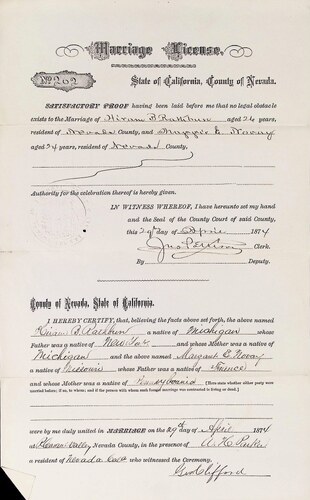 Marriage License.
No. 202
State of California, County of Nevada.
SATISFACTORY PROOF having been laid before me that no legal obstacle
exists to the Marriage of Hiram B Rathbun aged 26 years,
resident of Nevada County, and E.
aged 24 years, resident of Nevada County,
Authority for the celebration thereof is hereby given.
IN WITNESS WHEREOF, I have hereunto set my hand
and the Seal of the County Court of said County,
this 29th day of April 1874
Clerk.
By Deputy.
County of Nevada, State of California.
I HEREBY CERTIFY, that, believing the facts above set forth, the above named
Hiram B. Rathbun a native of Michigan whose
Father was a native of New York and whose Mother was a native of
Michigan and the above named Margaret E.
a native of Missouri whose Father was a native of France
and whose Mother was a native of
were by me duly united in MARRIAGE on the 29th day of April 1874
at Valley Nevada County, in the presence of A. H. Parker
a resident of Nevada who witnessed the Ceremony.
Geo Clifford